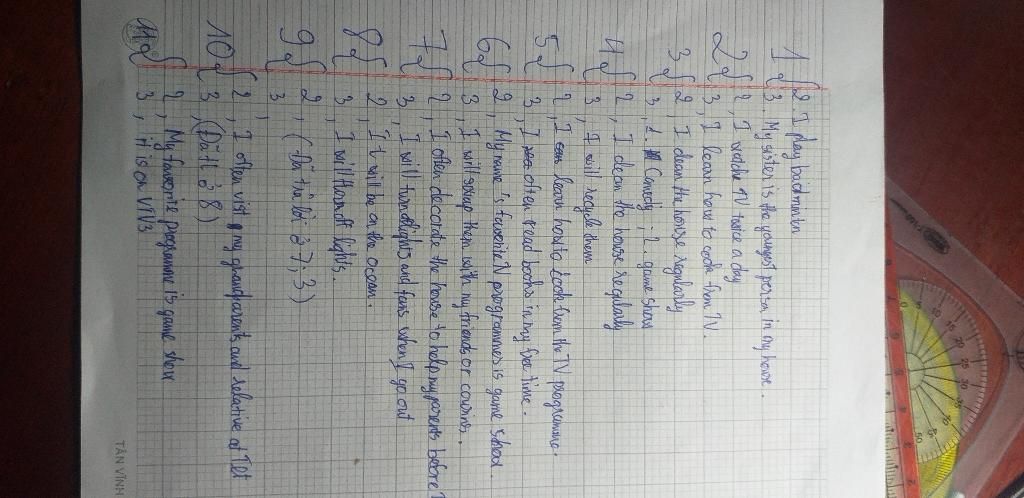 1 2 I play badminton
3, My sister is the youngest person in my house.
2 2, I watche TV twice a day
3, I learn how to cook from TV.
3 2, I clean the house regularly
3, 1. Comedy ; 2 game show
4 2, I clean the house regularly
3, I will recycle them
5 2, I learn how to cook from the TV programme.
3, I often read books in my free time.
6 2, My name's favorite TV programmes is game show.
3, I will swap them with my friends or cousins.
7 2, I often decorate the house to help my parents before T
3, I will turn off lights and fans when I go out
8 2, It will be on the ocean.
3, I will turn off lights.
9 2, (Đã trả lời ở 7; 3)
3,
10 2, I often visit my grandparents and relative at Tet
3, (Đã tl ở 8)
11 2, My favourite programme is game show
3, it is on VTV3
TÂN VĨNH